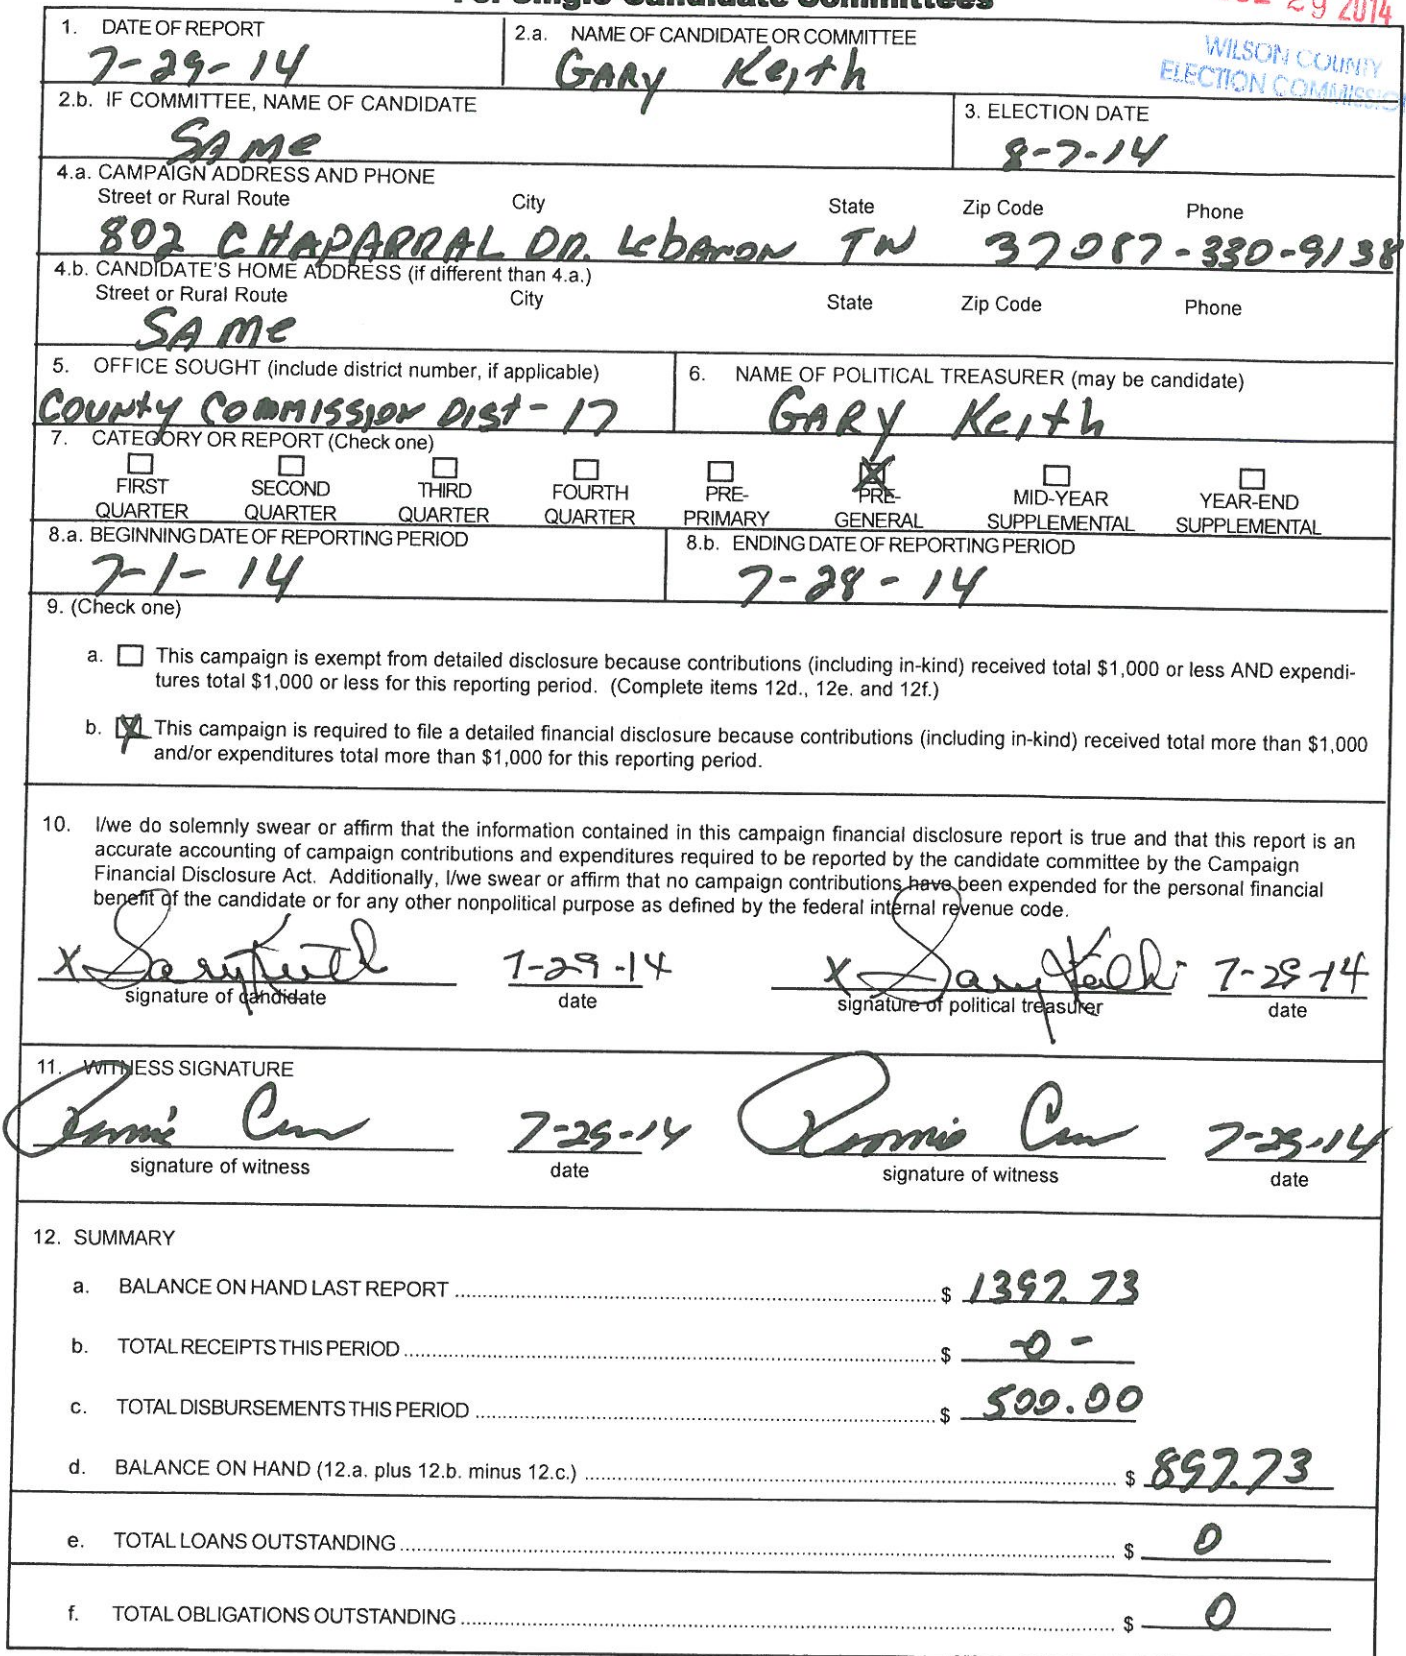 For Single Candidate Committees
29 2014
WILSON COUNTY
ELECTION COMMISSIO
1. DATE OF REPORT
7-29-14
2.a. NAME OF CANDIDATE OR COMMITTEE
GARY Keith
2.b. IF COMMITTEE, NAME OF CANDIDATE
SAME
3. ELECTION DATE
8-7-14
4.a. CAMPAIGN ADDRESS AND PHONE
Street or Rural Route City State Zip Code Phone
802 CHAPARRAL DR. Lebanon TN 37087-330-9138
4.b. CANDIDATE'S HOME ADDRESS (if different than 4.a.)
Street or Rural Route City State Zip Code Phone
SAME
5. OFFICE SOUGHT (include district number, if applicable)
County Commission Dist-17
6. NAME OF POLITICAL TREASURER (may be candidate)
GARY Keith
7. CATEGORY OR REPORT (Check one)
FIRST QUARTER
SECOND QUARTER
THIRD QUARTER
FOURTH QUARTER
PRE-PRIMARY
PRE-GENERAL
MID-YEAR SUPPLEMENTAL
YEAR-END SUPPLEMENTAL
8.a. BEGINNING DATE OF REPORTING PERIOD
7-1-14
8.b. ENDING DATE OF REPORTING PERIOD
7-28-14
9. (Check one)
a. This campaign is exempt from detailed disclosure because contributions (including in-kind) received total $1,000 or less AND expendi-
tures total $1,000 or less for this reporting period. (Complete items 12d., 12e. and 12f.)
b. This campaign is required to file a detailed financial disclosure because contributions (including in-kind) received total more than $1,000
and/or expenditures total more than $1,000 for this reporting period.
10. I/we do solemnly swear or affirm that the information contained in this campaign financial disclosure report is true and that this report is an
accurate accounting of campaign contributions and expenditures required to be reported by the candidate committee by the Campaign
Financial Disclosure Act. Additionally, I/we swear or affirm that no campaign contributions have been expended for the personal financial
benefit of the candidate or for any other nonpolitical purpose as defined by the federal internal revenue code.
X Gary Keith 7-29-14 X Gary Keith 7-29-14
signature of candidate date signature of political treasurer date
11. WITNESS SIGNATURE
7-29-14 7-29-14
signature of witness date signature of witness date
12. SUMMARY
a. BALANCE ON HAND LAST REPORT $ 1397.73
b. TOTAL RECEIPTS THIS PERIOD $ -0-
c. TOTAL DISBURSEMENTS THIS PERIOD $ 500.00
d. BALANCE ON HAND (12.a. plus 12.b. minus 12.c.) $ 897.73
e. TOTAL LOANS OUTSTANDING $ 0
f. TOTAL OBLIGATIONS OUTSTANDING $ 0